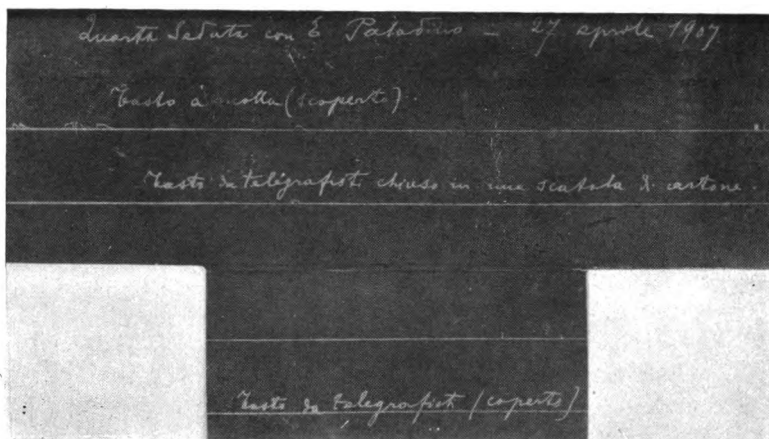 Quarta Seduta con E Paladino - 27 aprile 1907
Tasto a molla (scoperto).
Tasto da telegrafisti chiuso in una scatola di cartone.
Tasto da telegrafisti (coperto)